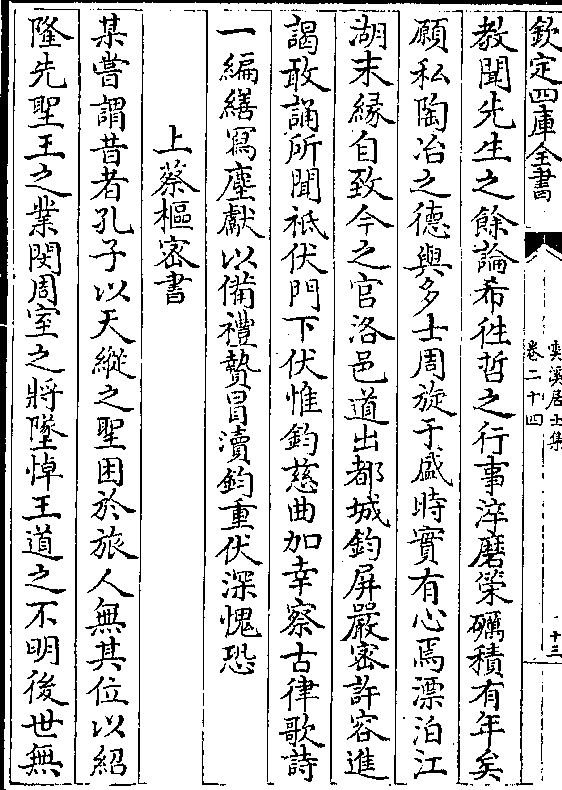 欽定四庫全書
雲溪居士集
卷二十四
十三
教聞先生之餘論希徃哲之行事淬磨榮礪積有年矣
願私陶冶之德與多士周旋于盛時實有心焉漂泊江
湖末縁自致今之官洛邑道出都城鈞屏嚴密許容進
謁敢誦所聞祗伏門下伏惟鈞慈曲加幸察古律歌詩
一編繕寫塵獻以備禮贄冒瀆鈞重伏深愧恐
上蔡樞密書
某嘗謂昔者孔子以天縱之聖困於旅人無其位以紹
隆先聖王之業閔周室之將墜悼王道之不明後世無